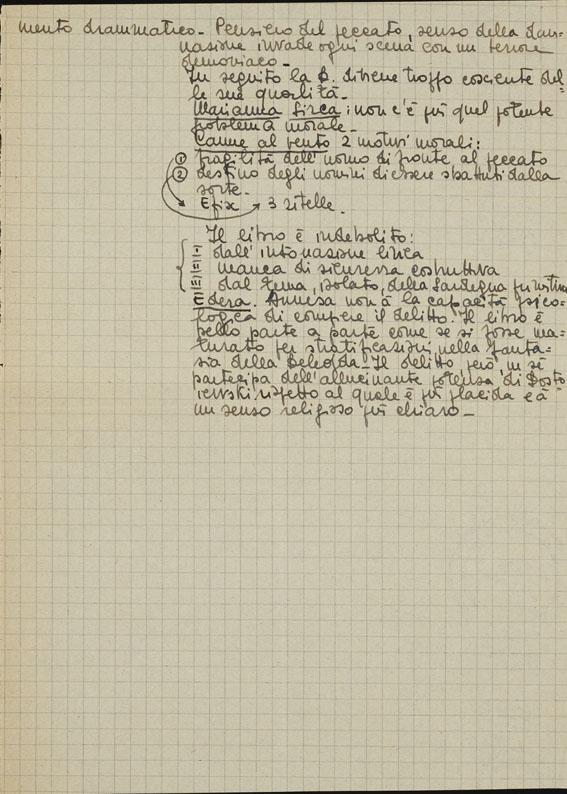 mento drammatico - Pensiero del peccato, senso della dan=
nasione invade ogni scena con un terrore
demoniaco -
In seguito la D. diviene troppo cosciente del=
le sue qualità -
Marianna Sirca: non c'è più quel potente
problema morale -
Canne al vento 2 motivi morali:
① fragilità dell'uomo di fronte al peccato
② destino degli uomini di essere sbattuti dalla
sorte.
Efix 3 zitelle.
Il libro è indebolito:
I dall'intonazione lirica
II manca di sicurezza costruttiva
III dal tema, isolato, della Sardegna
Edera. Annesa non à la capacità psico=
logica di compiere il delitto. Il libro è
bello parte a parte come se si fosse ma=
turato per stratificazioni nella fanta=
sia della Deledda. Il delitto però, in sé
partecipa dell'allucinante potenza di Dosto
iewski rispetto al quale è più placida e à
un senso religioso più chiaro -